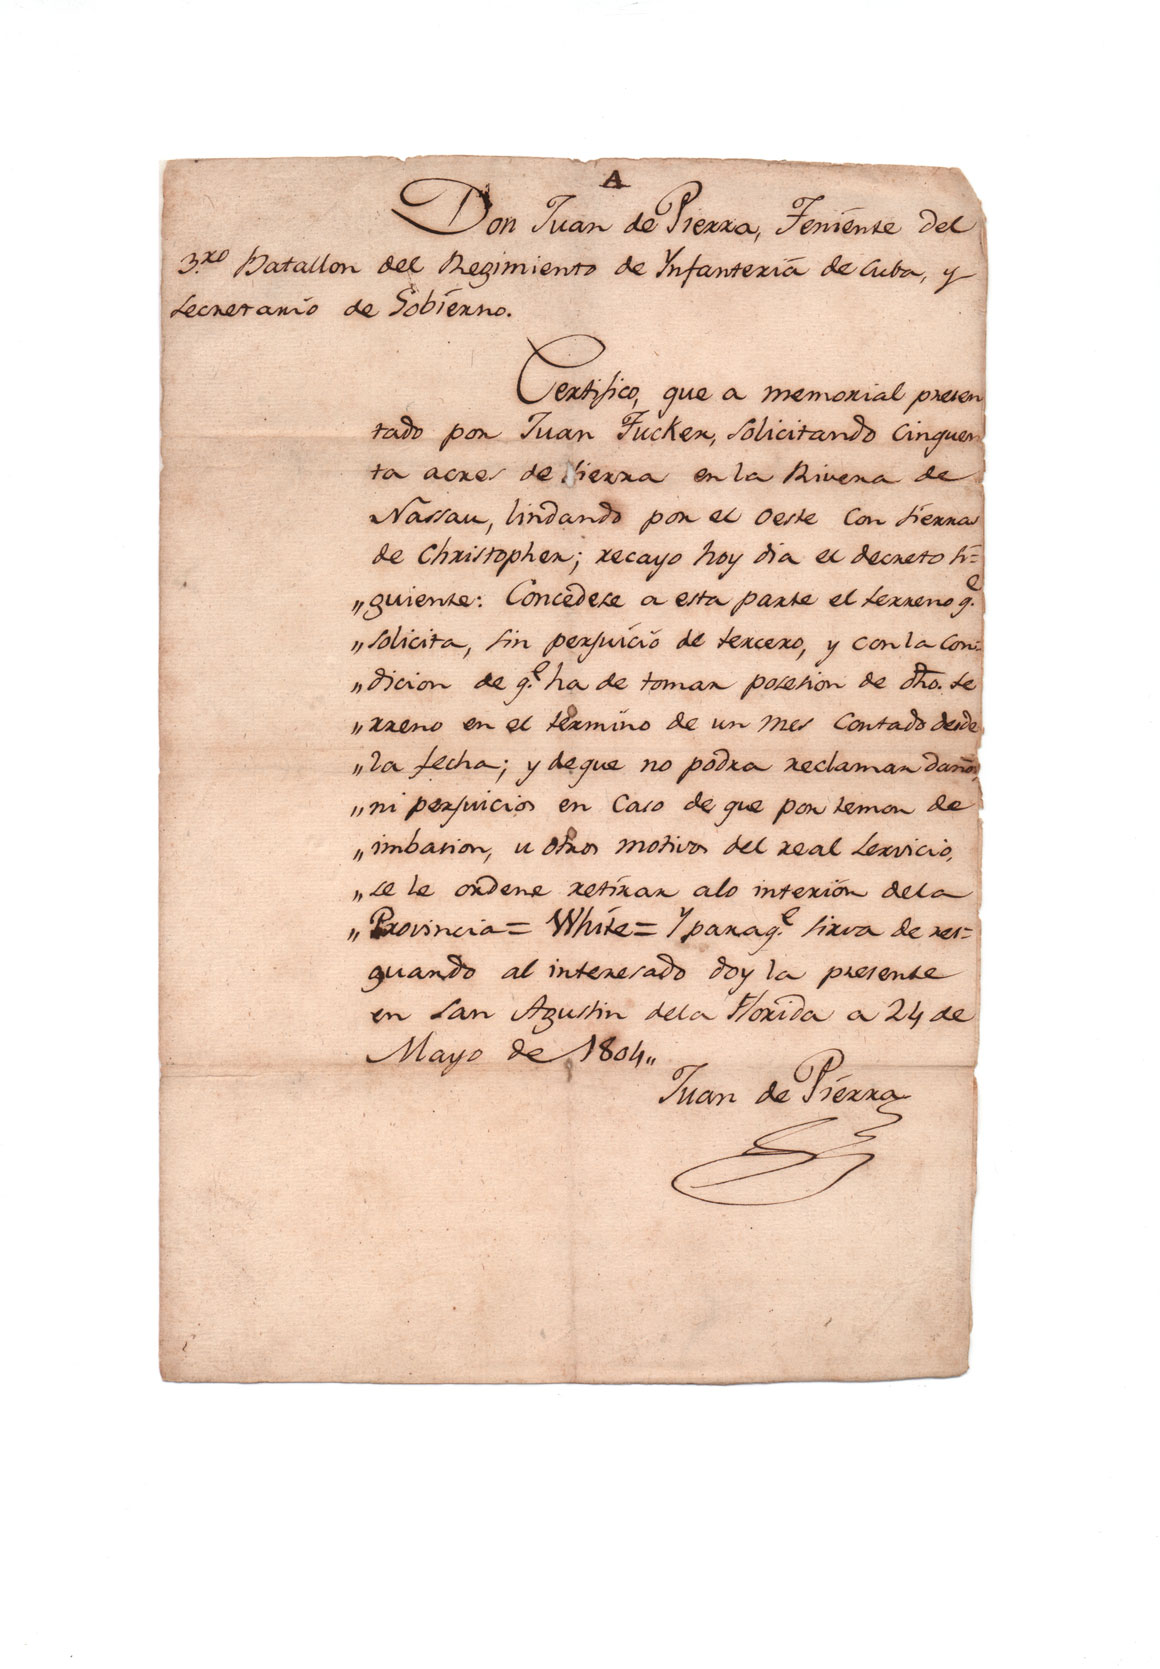 A
Don Juan de Pierra, Teniente del
3.ro Batallon del Regimiento de Ynfanteria de Cuba, y
Secretario de Gobierno.
Certifico, que a memorial presen
tado por Juan Tucker, solicitando cinquen
ta acres de tierra en la Rivera de
Nassau, lindando por el Oeste con tierras
de Christopher; recayo hoy dia el decreto si=
„guiente: Concedese a esta parte el terreno q.e
„solicita, sin perjuicio de tercero, y con la con=
„dicion de q.e ha de tomar posesion de dho. te
„rreno en el termino de un mes contado desde
„la fecha; y deque no podra reclamar daños,
„ni perjuicios en caso de que por temor de
„imbasion, u otros motivos del real servicio,
„se le ordene retirar alo interior dela
„Provincia = White = Y paraq.e sirva de res=
guardo al interesado doy la presente
en San Agustin dela Florida a 24 de
Mayo de 1804„
Juan de Pierra